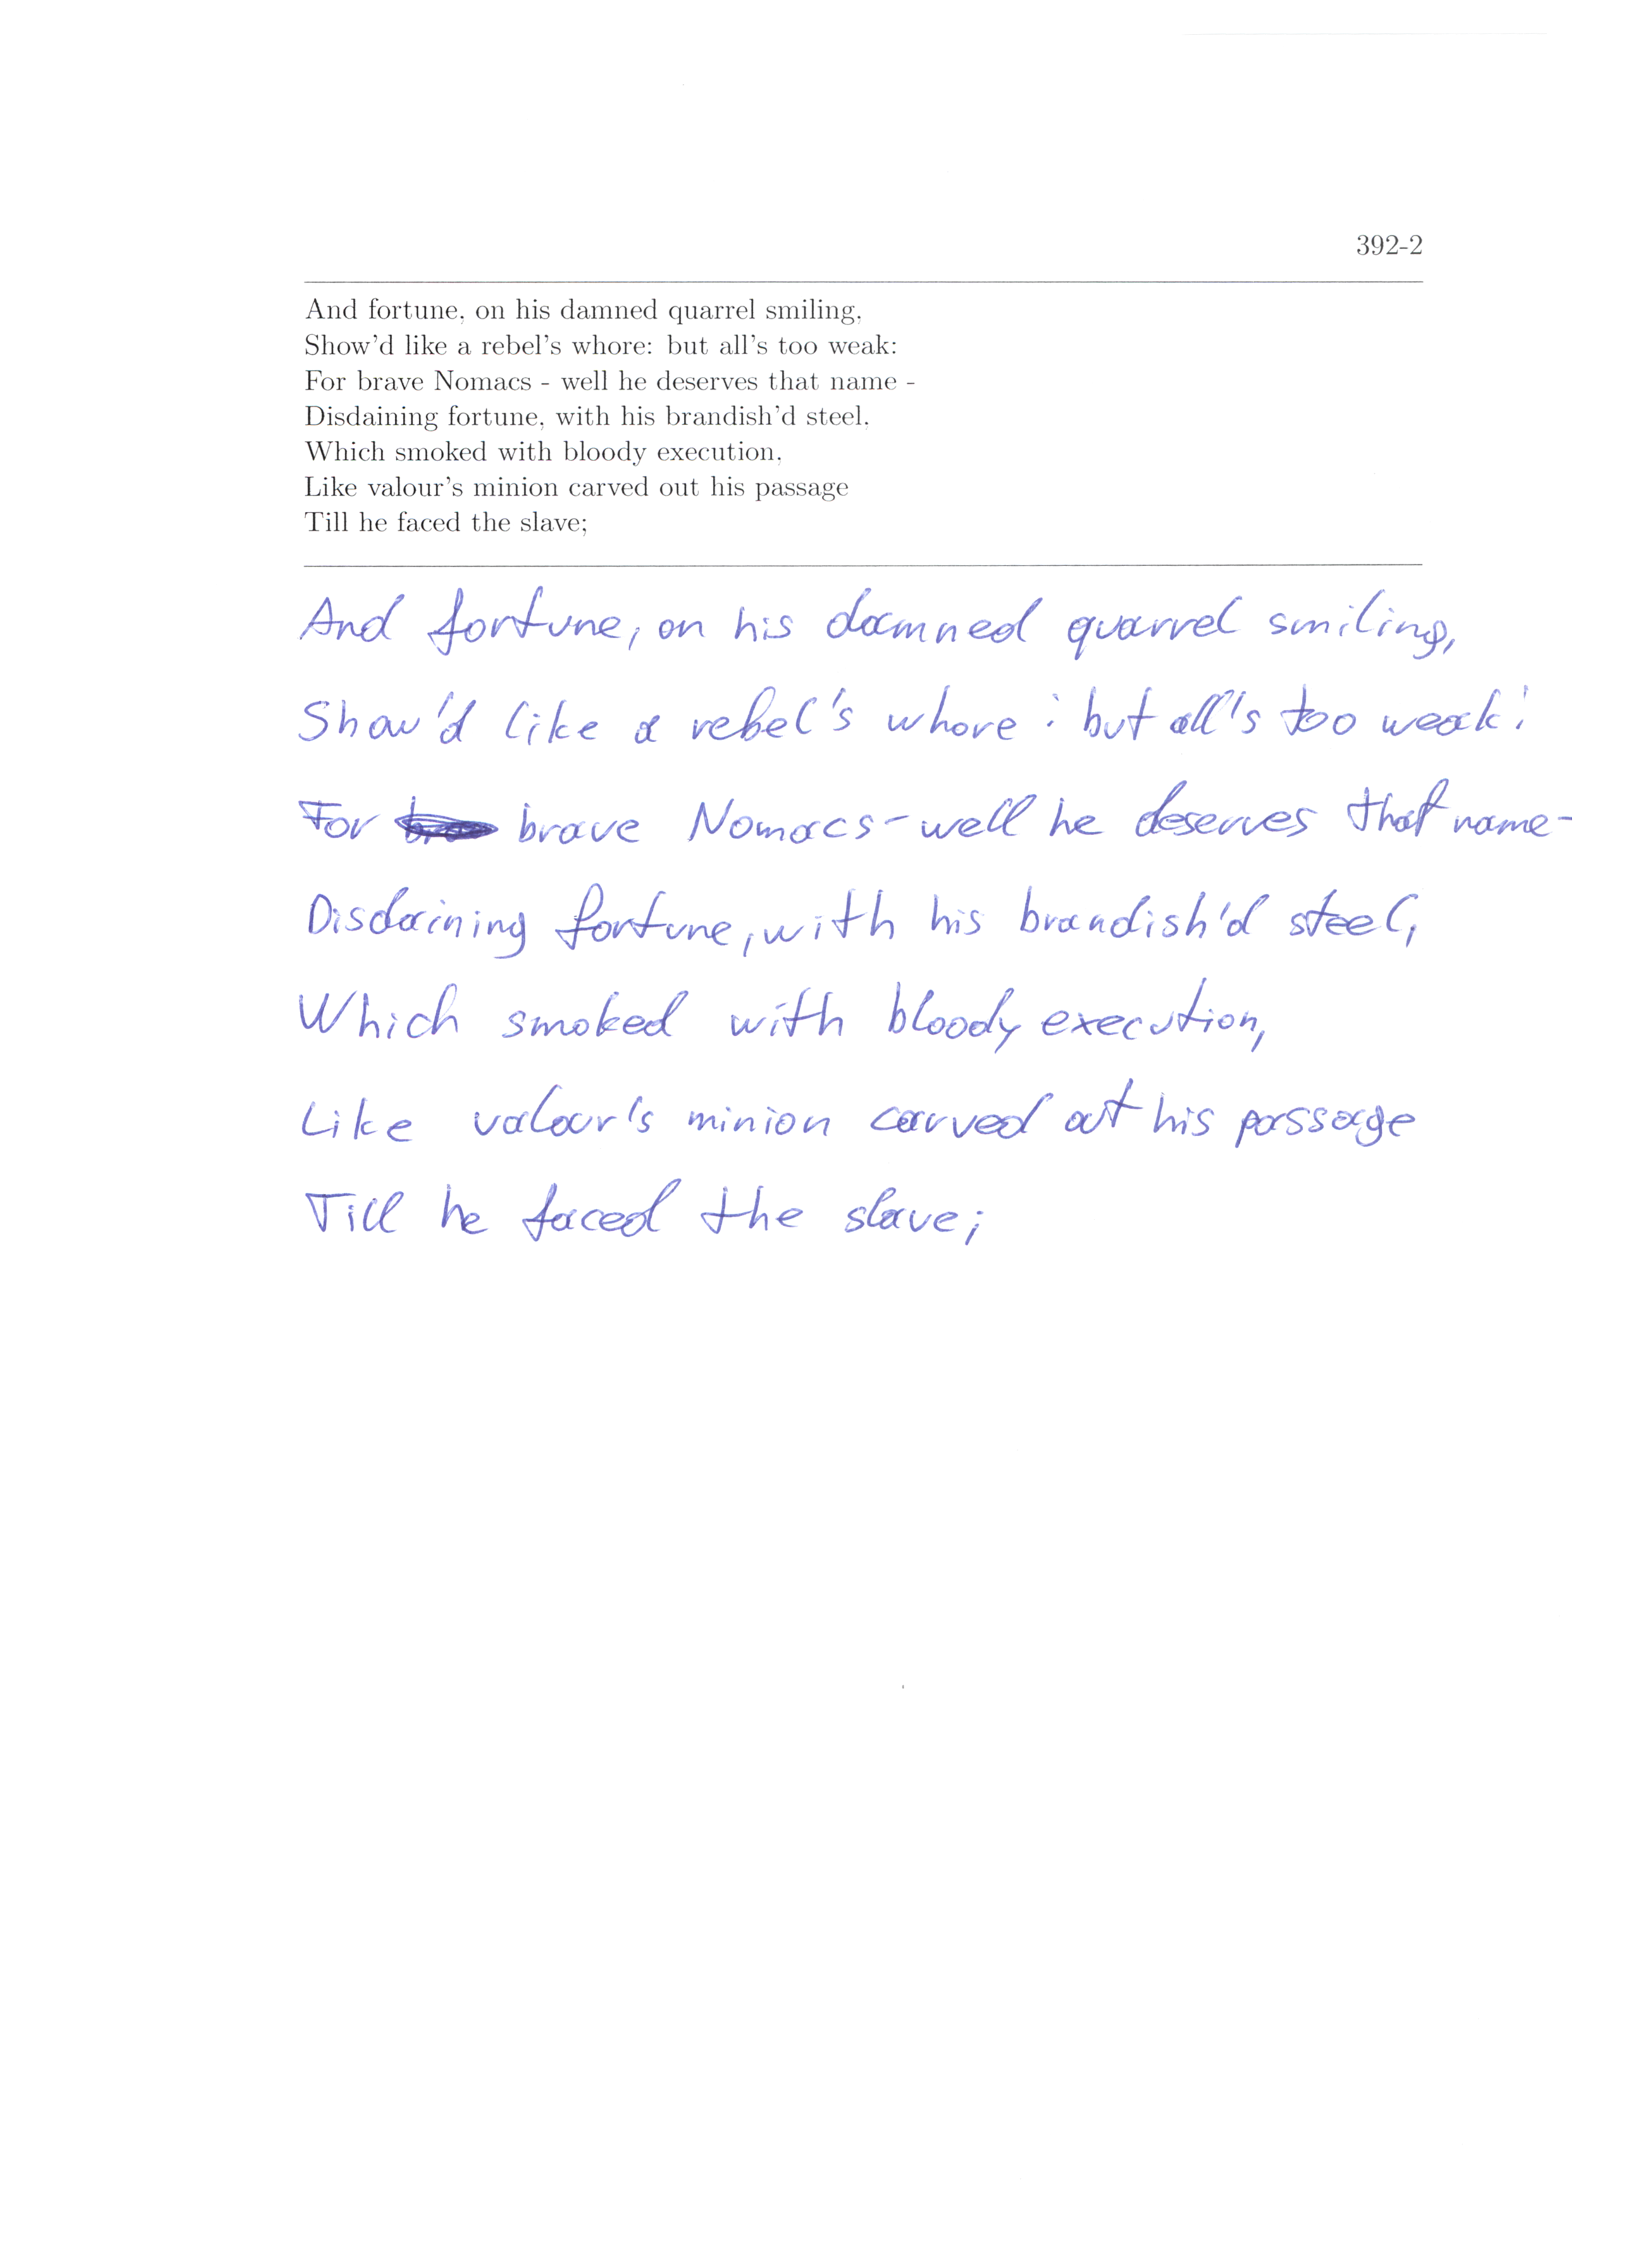 392-2
And fortune, on his damned quarrel smiling,
Show'd like a rebel's whore: but all's too weak:
For brave Nomacs - well he deserves that name -
Disdaining fortune, with his brandish'd steel,
Which smoked with bloody execution,
Like valour's minion carved out his passage
Till he faced the slave;
And fortune, on his damned quarrel smiling,
Show'd like a rebel's whore : but all's too weak:
For brave Nomacs - well he deserves that name -
Disdaining fortune, with his brandish'd steel,
Which smoked with bloody execution,
Like valour's minion carved out his passage
Till he faced the slave;